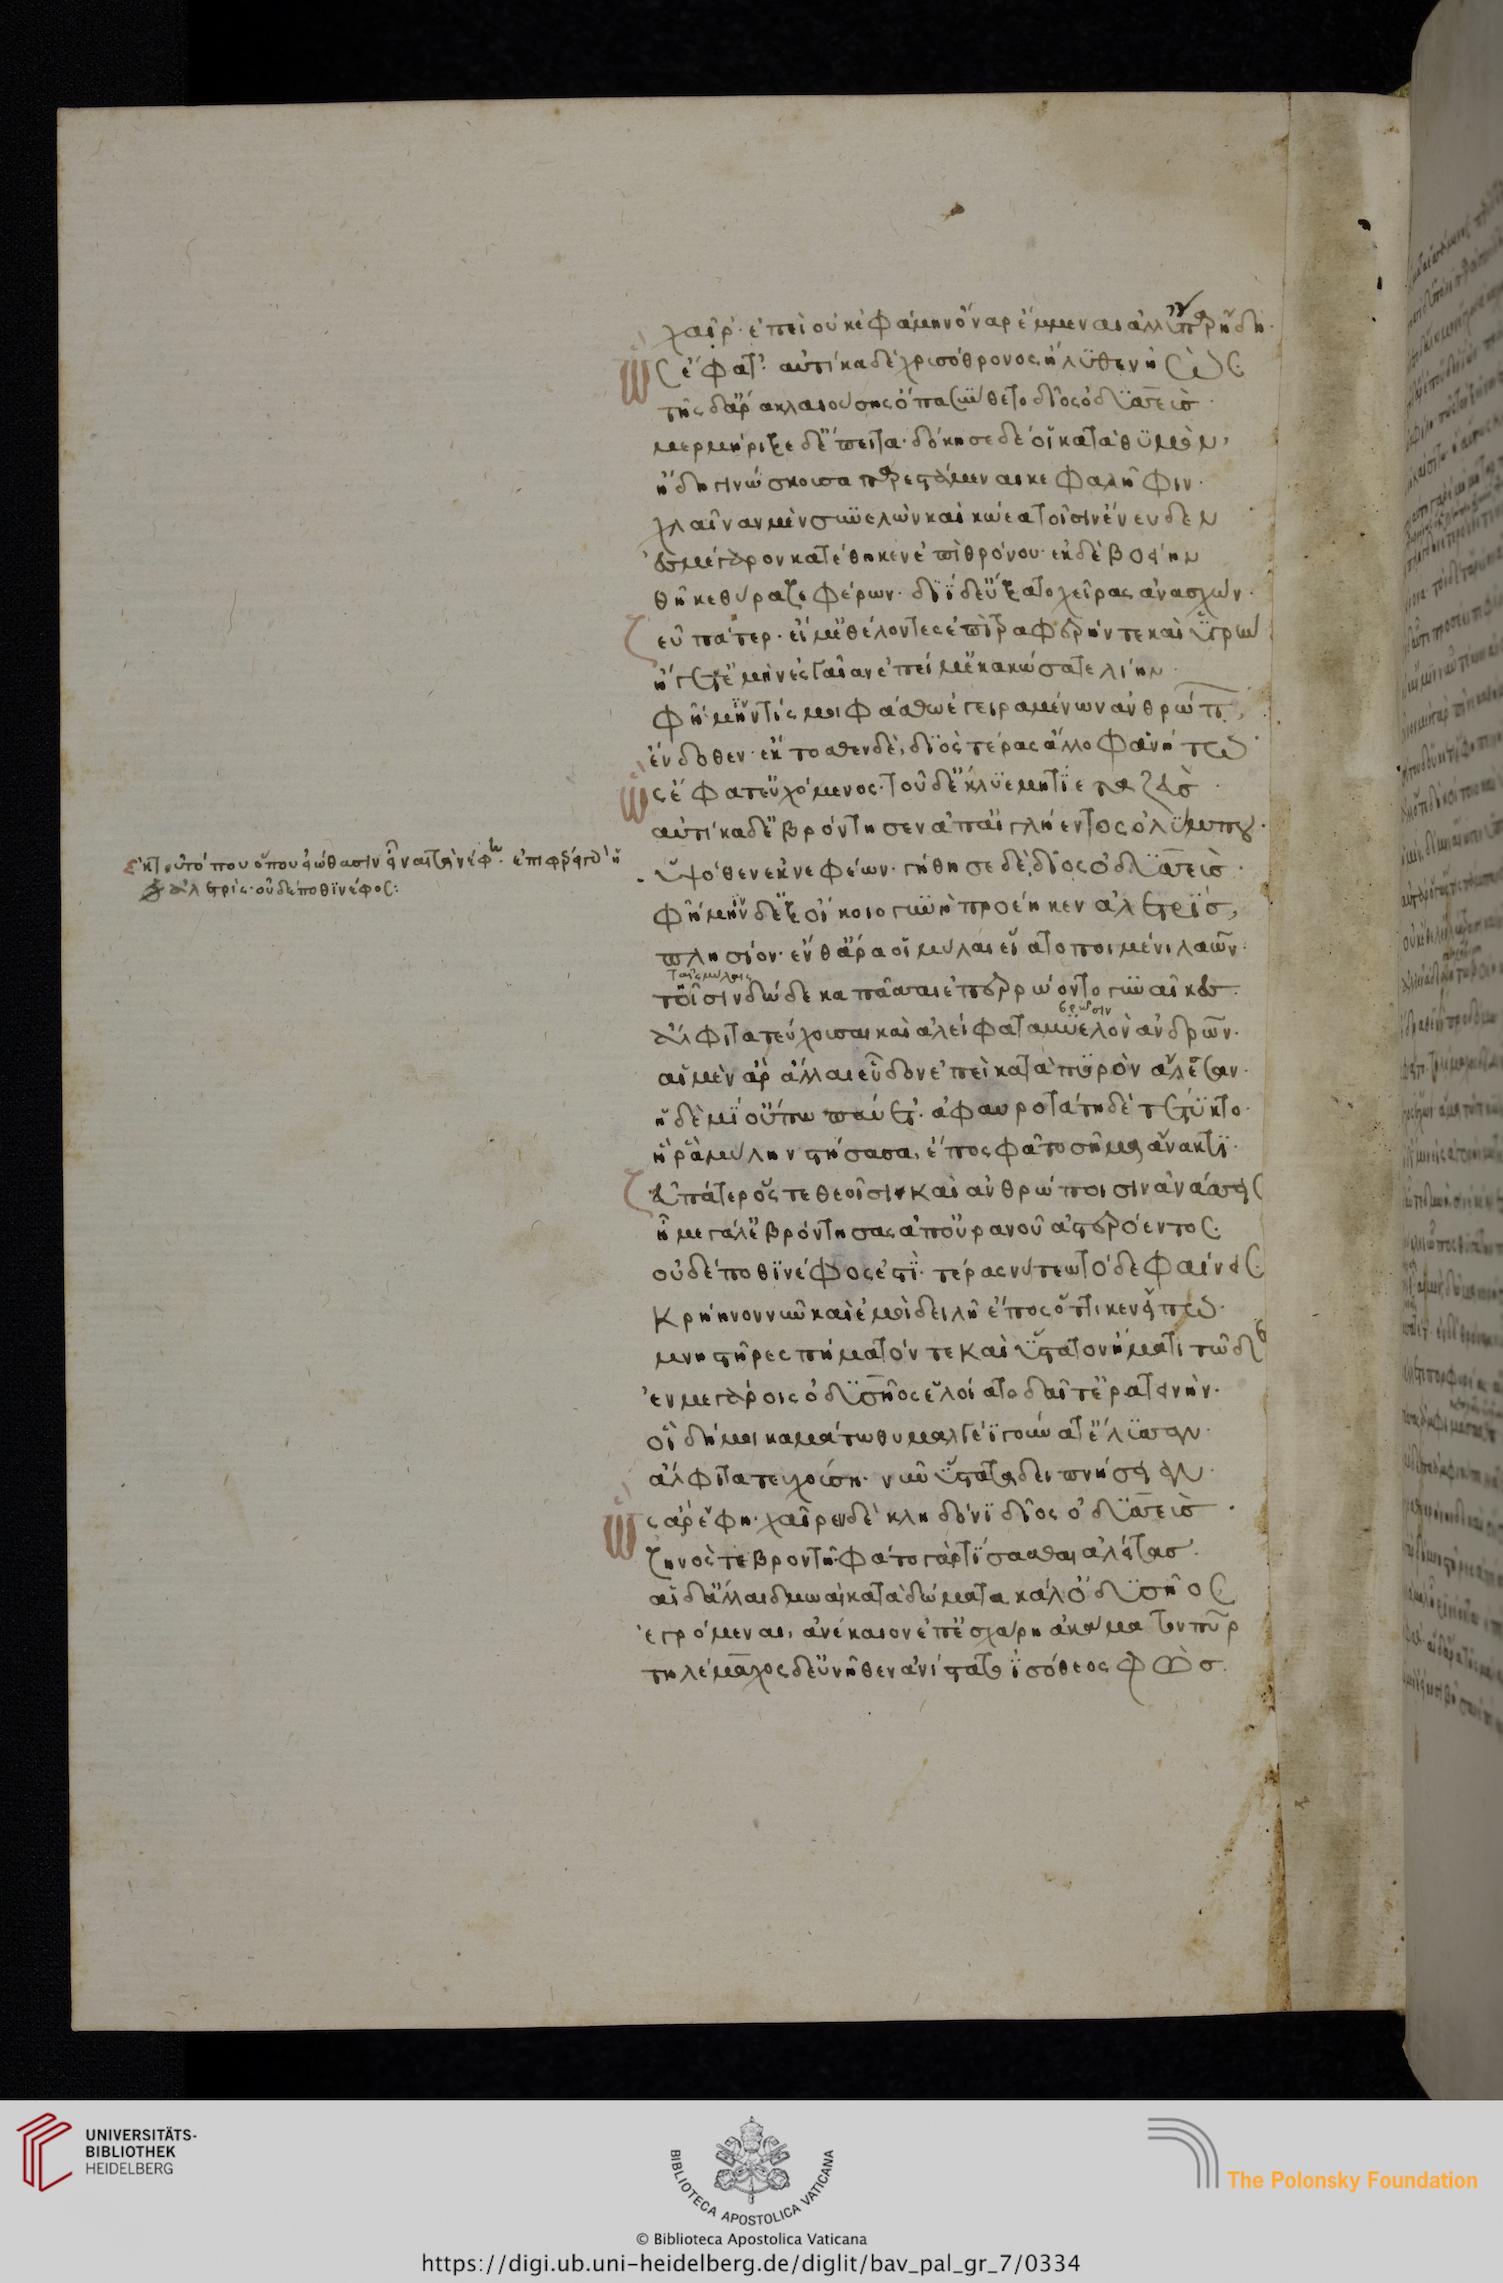 χαῖρ'· ἐπεὶ οὐκ ἐφάμην ὄναρ ἔμμεναι ἀλλ' ὕπαρ ἤδη·
ὣς ἔφατ'· αὐτίκα δὲ χρισόθρονος ἤλυθεν ἠώς·
τῆς δ' ἄρα κλαιούσης ὄπα σύνθετο δῖος ὀδυσσεύς·
μερμήριξε δ' ἔπειτα· δόκησε δέ οἱ κατὰ θυμὸν,
ἤδη γινώσκουσα παρεστάμεναι κεφαλῆφιν·
χλαῖναν μὲν συνελὼν καὶ κώεα τοῖσιν ἔνευδεν
ἐς μέγαρον κατέθηκεν ἐπὶ θρόνου· ἐκ δὲ βοείην
θῆκε θύραζε φέρων· διῒ δ' εὔξατο χεῖρας ἀνασχών·
ζεῦ πάτερ· εἴ μ' ἐθέλοντες ἐπὶ τραφερήν τε καὶ ὑγρὴν
ἤγετ' ἐμὴν ἐς γαῖαν ἐπεί μ' ἐκακώσατε λίην·
φήμην τίς μοι φάσθω ἐγειραμένων ἀνθρώπων,
ἔνδοθεν· ἔκτοσθεν δὲ, διὸς τέρας ἄλλο φανήτω·
ὣς ἔφατ' εὐχόμενος· τοῦ δ' ἔκλυε μητίετα ζεύς·
αὐτίκα δ' ἐβρόντησεν ἀπ' αἰγλήεντος ὀλύμπου·
ὑψόθεν ἐκ νεφέων· γήθησε δὲ δῖος ὀδυσσεύς·
ἐκ τόπου ὅπου εἰώθασιν εἶναι τὰ νέφη· ἐπιφέρει ἡ
ἀλετρίς· οὐδέ ποθι νέφος:
φήμην δ' ἐξ οἴκοιο γυνὴ προέηκεν ἀλετρίς,
πλησίον· ἔνθ' ἄρα οἱ μύλαι εἵατο ποιμένι λαῶν·
ταῖς μύλαις
τοῖσιν δώδεκα πᾶσαι ἐπερρώοντο γυναῖκες·
ἄλφιτα τεύχουσαι καὶ ἀλείφατα μυελὸν ἀνδρῶν·
αἱ μὲν ἄρ' ἄλλαι εὗδον ἐπεὶ κατὰ πυρὸν ἄλεσσαν·
ἡ δὲ μί' οὔπω παύετ'· ἀφαυροτάτη δ' ἐτέτυκτο·
ἥ ῥα μύλην στήσασα, ἔπος φάτο σῆμα ἄνακτι·
ζεῦ πάτερ ὅς τε θεοῖσι καὶ ἀνθρώποισιν ἀνάσσεις
ἦ μεγάλ' ἐβρόντησας ἀπ' οὐρανοῦ ἀστερόεντος·
οὐδέ ποθι νέφος ἐστί· τέρας νύ τεῳ τόδε φαίνεις·
κρήηνον νῦν καὶ ἐμοὶ δειλῇ ἔπος ὅττι κεν εἴπω·
μνηστῆρες πύματόν τε καὶ ὕστατον ἤματι τῷδε
ἐν μεγάροις ὀδυσσῆος ἑλοίατο δαῖτ' ἐρατεινήν·
οἳ δή μοι καμάτῳ θυμαλγέϊ γούνατ' ἔλυσαν·
ἄλφιτα τευχούσῃ· νῦν ὕστατα δειπνήσειαν·
ὣς ἄρ' ἔφη· χαῖρεν δὲ κληδόνι δῖος ὀδυσσεύς·
ζηνός τε βροντῇ· φάτο γὰρ τίσασθαι ἀλείτας·
αἱ δ' ἄλλαι δμωαὶ κατὰ δώματα κάλ' ὀδυσῆος
ἐγρόμεναι, ἀνέκαιον ἐπ' ἐσχάρῃ ἀκάματον πῦρ
τηλέμαχος δ' εὐνῆθεν ἀνίστατο ἰσόθεος φώς·
UNIVERSITÄTS-
BIBLIOTHEK
HEIDELBERG
BIBLIOTECA APOSTOLICA VATICANA
The Polonsky Foundation
© Biblioteca Apostolica Vaticana
https://digi.ub.uni-heidelberg.de/diglit/bav_pal_gr_7/0334